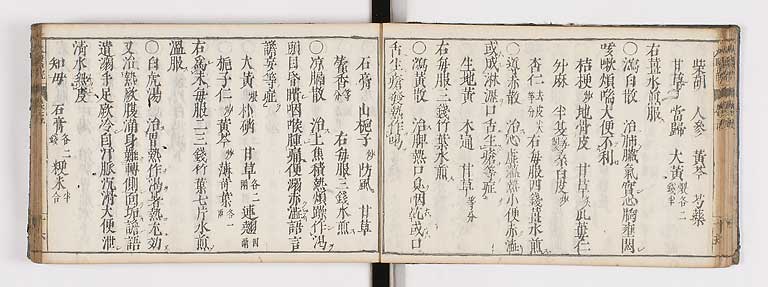 柴胡 人参 黃芩 芍藥
甘草 當歸 大黃 各二錢半
右薑水煎服
○瀉白散 治肺臟氣實心胸壅悶
咳嗽煩喘大便不利
桔梗 地骨皮 甘草 此葉仁
升麻 半夏 桑白皮
杏仁 去皮 右每服四錢薑水煎
○導赤散 治心虛蘊熱小便赤澁
或成淋瀝口舌生瘡等症
生地黃 木通 甘草 等分
右每服三錢竹葉水煎
○瀉黃散 治脾熱口臭咽乾或口
舌生瘡發熱作渴
石膏 山梔子 炒 防風 甘草
藿香 右每服三錢水煎
○凉膈散 治上焦積熱煩躁作渴
頭目昏瞶咽喉腫痛便溺赤澁語言
譫妄等症
大黃 朴硝 甘草 各二兩 連翹 四兩
梔子仁 炒 黃芩 炒 薄荷葉 各一兩
右爲末每服二三錢竹葉七片水煎
溫服
○白虎湯 治胃熱作渴暑熱尤効
又治熱厥腹滿身難轉側面垢譫語
遺溺手足厥冷自汗脈沉滑大便泄
清水熱度
知母 石膏 各二錢 粳米 半合